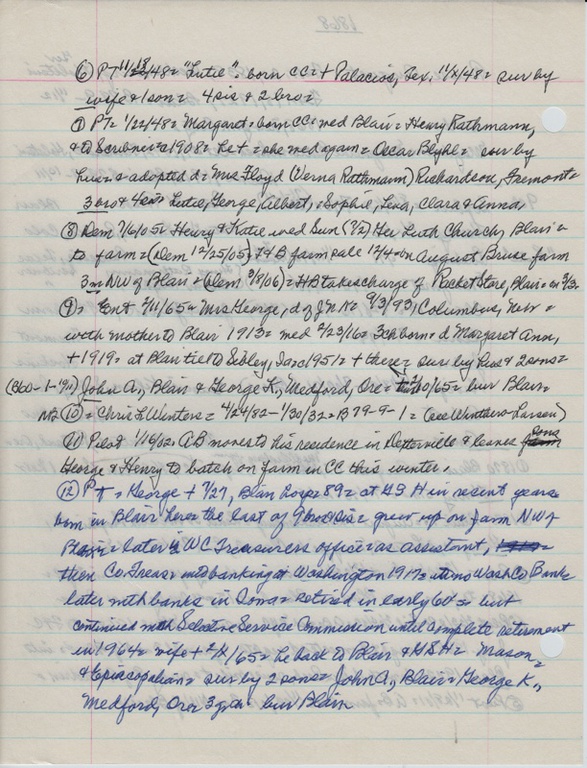 ⑥ PT 11/18/48 = "Lutie" = born CC = + Palacios, Tex, 11/X/48 = sur by
wife & 1 son = 4 sis & 2 bro =
⑦ PT = 1/22/48 = Margaret = born CC = wed Blair = Henry Rathmann,
& to Scribner = 1908 = he + = she wed again = Oscar Blyhl = sur by
hus = & adopted d = Mrs Floyd (Verna Rathmann) Richardson, Fremont =
3 bro & 4 sis = Lutie, George, Albert, = Sophie, Lena, Clara & Anna
⑧ Dem 7/6/05 = Henry & Katie wed Sun (7/2) Her Luth Church, Blair =
to farm = (Dem 12/25/05) H & B farm sale 12/4 on August Bruse farm
3 m NW of Blair = (Dem 3/8/06) = HB takes charge of Racket Store, Blair = on 3/3 =
⑨ = Ent 2/11/65 = Mrs George, d of J N K = 9/3/93, Columbus, New =
with mother to Blair 1913 = wed 2/23/16 = 3 ch born = d Margaret Ann,
+ 1919 = at Blair til to Sibley, Ia = cl 1951 = + there = sur by hus & 2 sons =
(B60-1-'91) John A., Blair & George K., Medford, Ore = 1/30/65 = bur Blair =
NB ⑩ = Chris L Winters = 4/24/82 - 1/30/32 = B 79-9-1 = (see Winters-Larsen)
⑪ Pilot 1/16/02 = AB moves to his residence in Dexterville & leaves sons
George & Henry to batch on farm in CC this winter.
⑫ PT = George + 7/27, Blair Lodge 89 = at GSH in recent years =
born in Blair = here = the last of 9 bro & sis = grew up on farm NW of
Blair = later in WC Treasurers office = as assistant,
then Co Treas = into banking at Washington 1917 = Wash Co Bank =
later with banks in Iowa = retired in early 60's = but
continued with Selective Service Commission until complete retirement
in 1964 = wife + 2/X/65 = he back to Blair & GSH = Mason =
& Episcopalian = sur by 2 sons = John A., Blair = George K.,
Medford, Ore = 3 gch = bur Blair